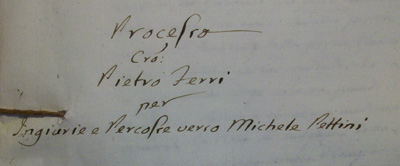 Processo
Cro:
Pietro Ferri
per
Ingiurie e Percosse verso Michele Pettini